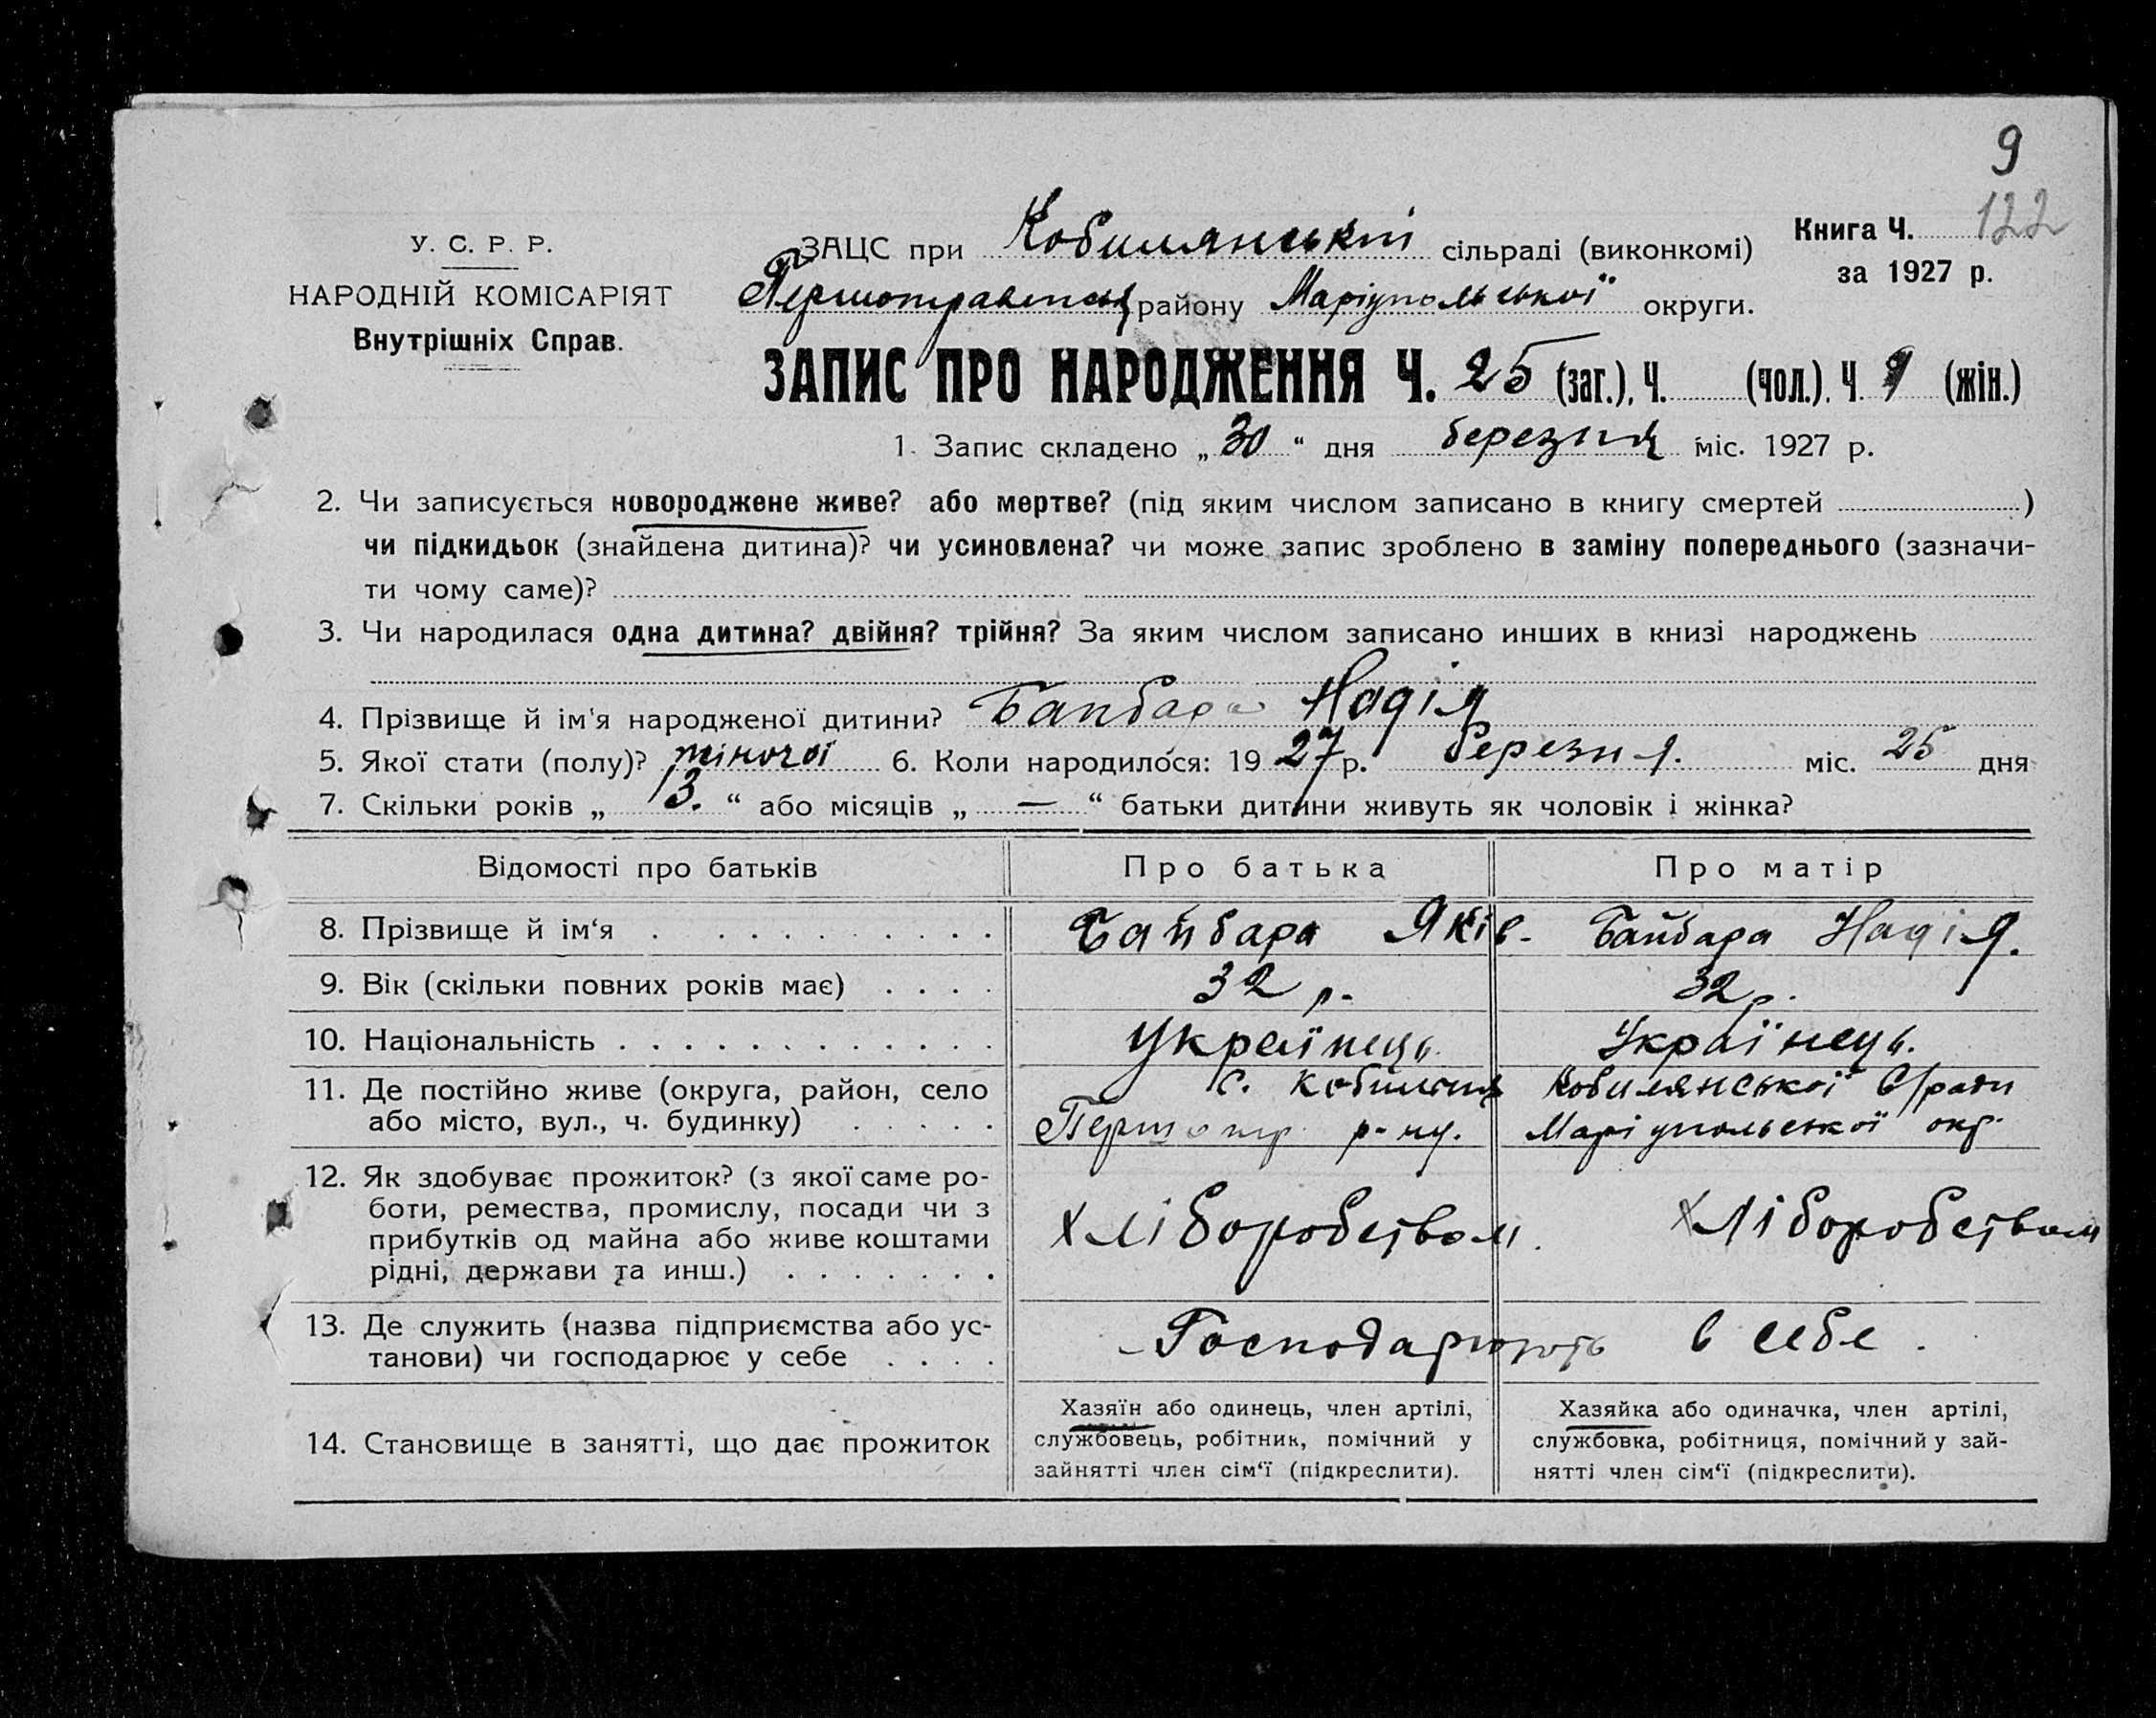 9
122
У. С. Р. Р.
НАРОДНІЙ КОМІСАРІЯТ
Внутрішніх Справ.
ЗАЦС при Кобилянській сільраді (виконкомі)
Першотравенськ району Маріупольської округи.
Книга Ч.
за 1927 р.
ЗАПИС ПРО НАРОДЖЕННЯ Ч. 25 (заг.), Ч. (чол.). Ч. 9 (жін.)
1. Запис складено „ 30 “ дня березня міс. 1927 р.
2. Чи записується новороджене живе? або мертве? (під яким числом записано в книгу смертей )
чи підкидьок (знайдена дитина)? чи усиновлена? чи може запис зроблено в заміну попереднього (зазначи-
ти чому саме)?
3. Чи народилася одна дитина? двійня? трійня? За яким числом записано инших в книзі народжень
4. Прізвище й ім'я народженої дитини? Байбара Надія
5. Якої стати (полу)? жіночої 6. Коли народилося: 19 27 р. березня. міс. 25 дня
7. Скільки років „ 13. “ або місяців „ — “ батьки дитини живуть як чоловік і жінка?
Відомості про батьків Про батька Про матір
8. Прізвище й ім‘я Байбара Яків. Байбара Надія.
9. Вік (скільки повних років має) 32 р. 32 р.
10. Національність Українець. Українець.
11. Де постійно живе (округа, район, село с. Кобильня Кобилянської С/ради
або місто, вул., ч. будинку) Першотр. р-ну. Маріупольської окр.
12. Як здобуває прожиток? (з якої саме ро-
боти, ремества, промислу, посади чи з
прибутків од майна або живе коштами
рідні, держави та инш.)
Хліборобством. Хліборобством
13. Де служить (назва підприємства або ус-
танови) чи господарює у себе
Господарюють в себе.
14. Становище в занятті, що дає прожиток
Хазяїн або одинець, член артілі,
службовець, робітник, помічний у
зайнятті член сім‘ї (підкреслити).
Хазяйка або одиначка, член артілі,
службовка, робітниця, помічний у зай-
нятті член сім‘ї (підкреслити).